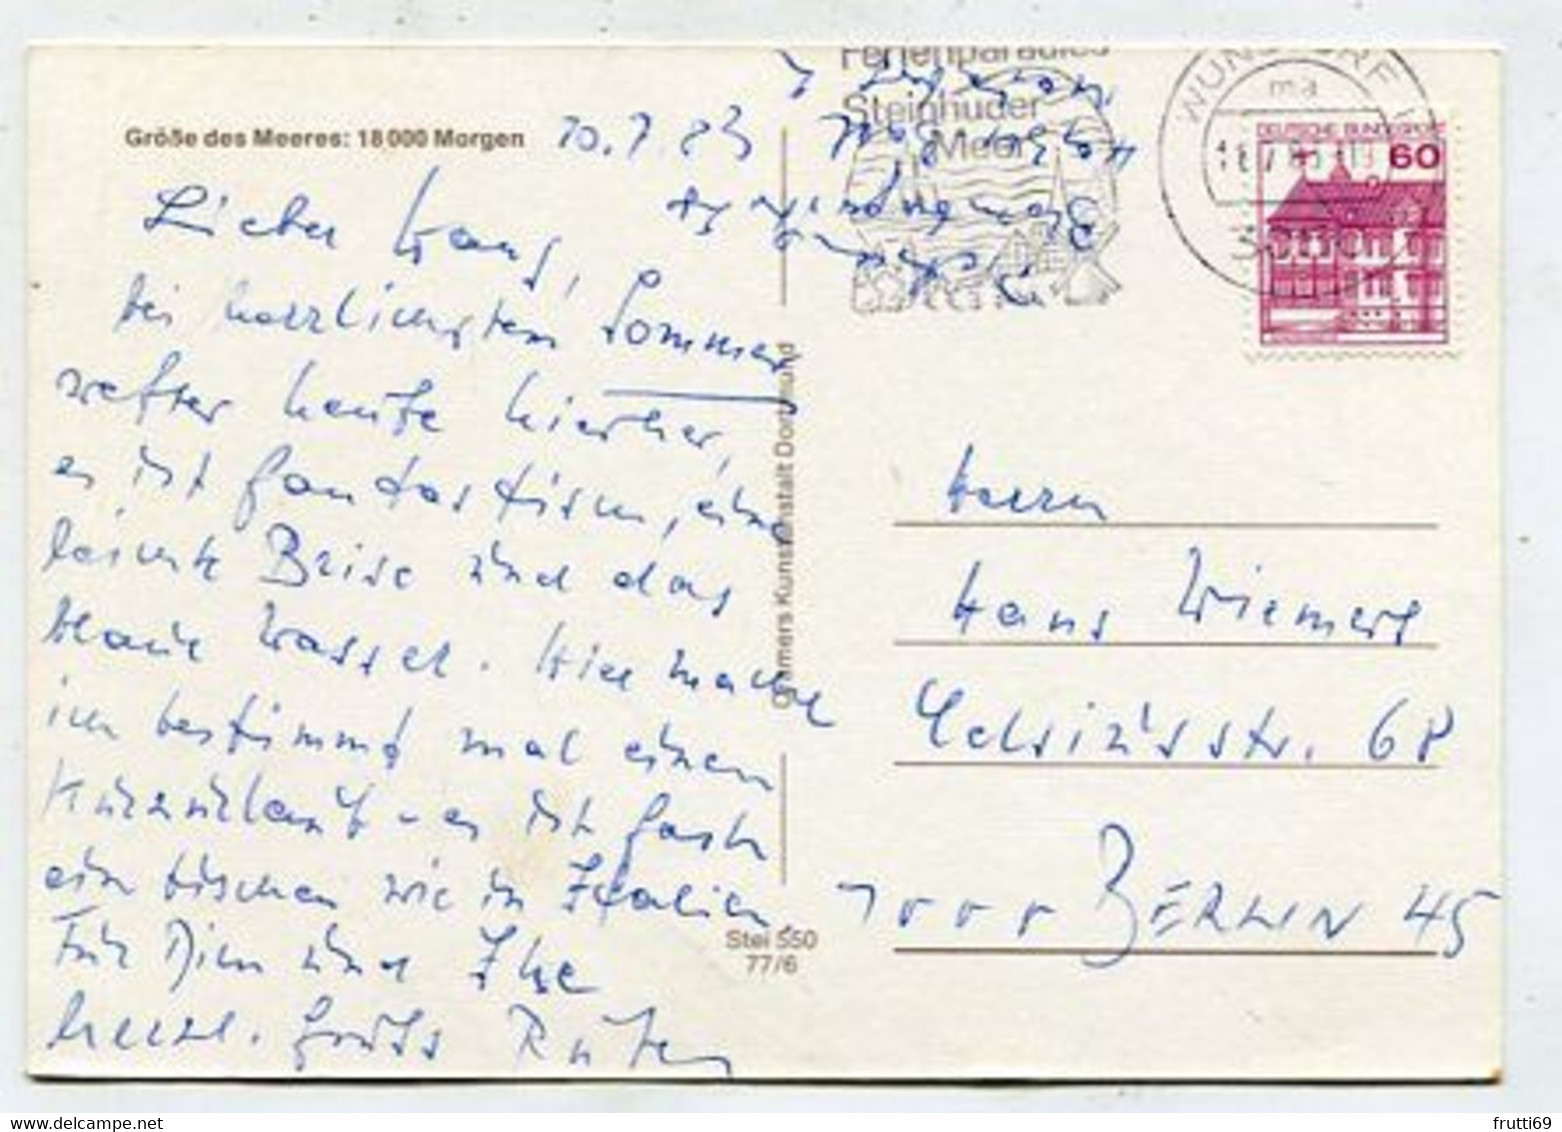 Größe des Meeres: 18000 Morgen
10.7.83
Lieber Hans,
bei herrlichstem Sommer
wetter heute hierher,
es ist fantastisch, eine
leichte Brise und das
blaue Wasser. Hier mache
ich bestimmt mal einen
Kurzurlaub - es ist fast
ein bischen wie in Italien.
Für Dich und Ilse
herzl. Grüße
Cramers Kunstanstalt Dortmund
Stei 550
77/6
Ferienparadies
Steinhuder
Meer
WUNSTORF
ma
DEUTSCHE BUNDESPOST
60
Herrn
Hans Wiemers
Celsiusstr. 68
1000 BERLIN 45
frutti69